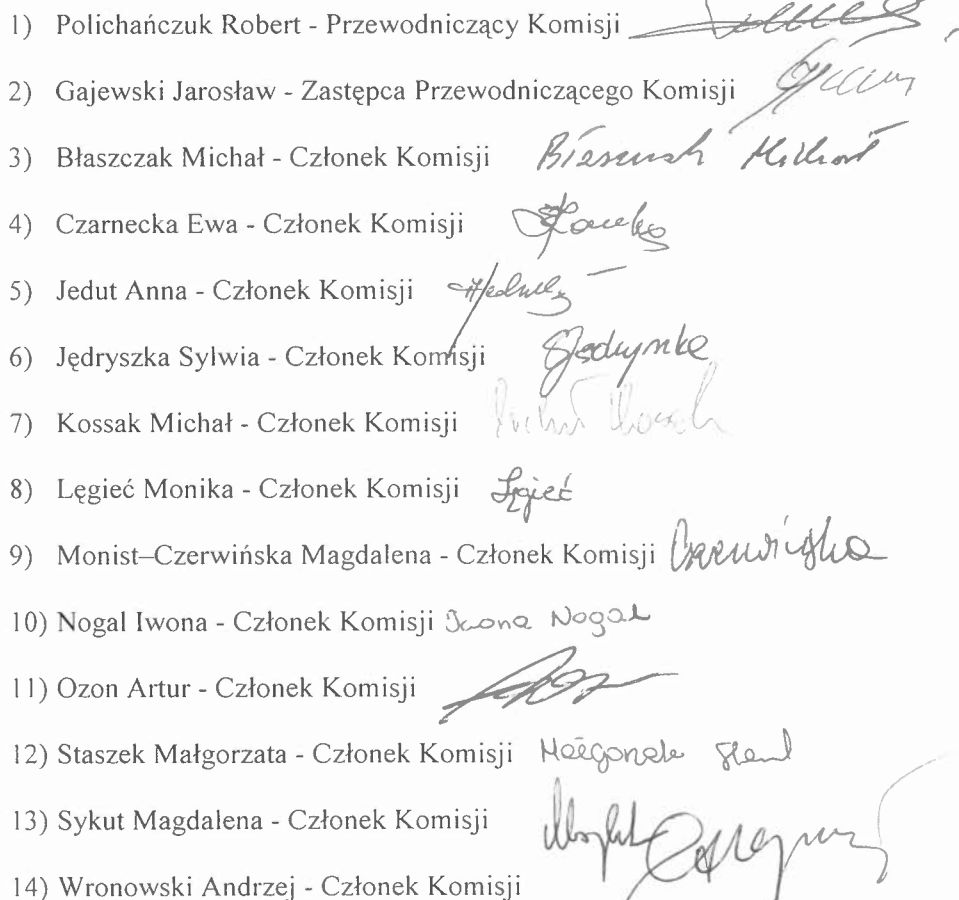 1) Polichańczuk Robert - Przewodniczący Komisji
2) Gajewski Jarosław - Zastępca Przewodniczącego Komisji
3) Błaszczak Michał - Członek Komisji
4) Czarnecka Ewa - Członek Komisji
5) Jedut Anna - Członek Komisji
6) Jędryszka Sylwia - Członek Komisji
7) Kossak Michał - Członek Komisji
8) Lęgieć Monika - Członek Komisji Lęgieć
9) Monist–Czerwińska Magdalena - Członek Komisji Czerwińska
10) Nogal Iwona - Członek Komisji Iwona Nogal
11) Ozon Artur - Członek Komisji
12) Staszek Małgorzata - Członek Komisji
13) Sykut Magdalena - Członek Komisji
14) Wronowski Andrzej - Członek Komisji